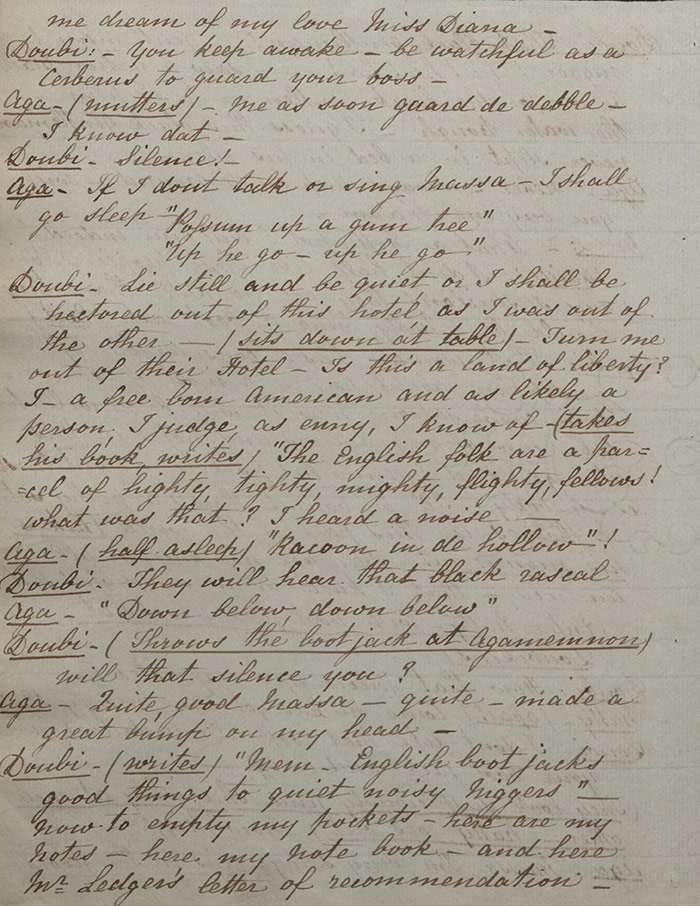 me dream of my love Miss Diana –
Doubi: – You keep awake – be watchful as a
Cerberus to guard your boss –
Aga – (mutters) – Me as soon gaard de debble –
I know dat –
Doubi – Silence! –
Aga – If I dont talk or sing Massa – I shall
go sleep "Possum up a gum tree"
"Up he go – up he go"
Doubi – Lie still and be quiet or I shall be
hectored out of this hotel, as I was out of
the other — (sits down at table) – Turn me
out of their Hotel – Is this a land of liberty?
I – a free born American and as likely a
person, I judge, as enny, I know of – (takes
his book, writes) "The English folk are a par=
=cel of highty, tighty, mighty, flighty, fellows!
what was that? I heard a noise —
Aga – (half asleep) "Racoon in de hollow"!
Doubi – They will hear that black rascal
Aga – "Down below, down below"
Doubi – (Throws the boot jack at Agamemnon)
will that silence you?
Aga – Quite, good Massa – quite – made a
great bump on my head –
Doubi – (writes) "Mem – English boot jacks
good things to quiet noisy Niggers" —
now to empty my pockets – here are my
notes – here my note book – and here
Mr Ledger's letter of recommendation –